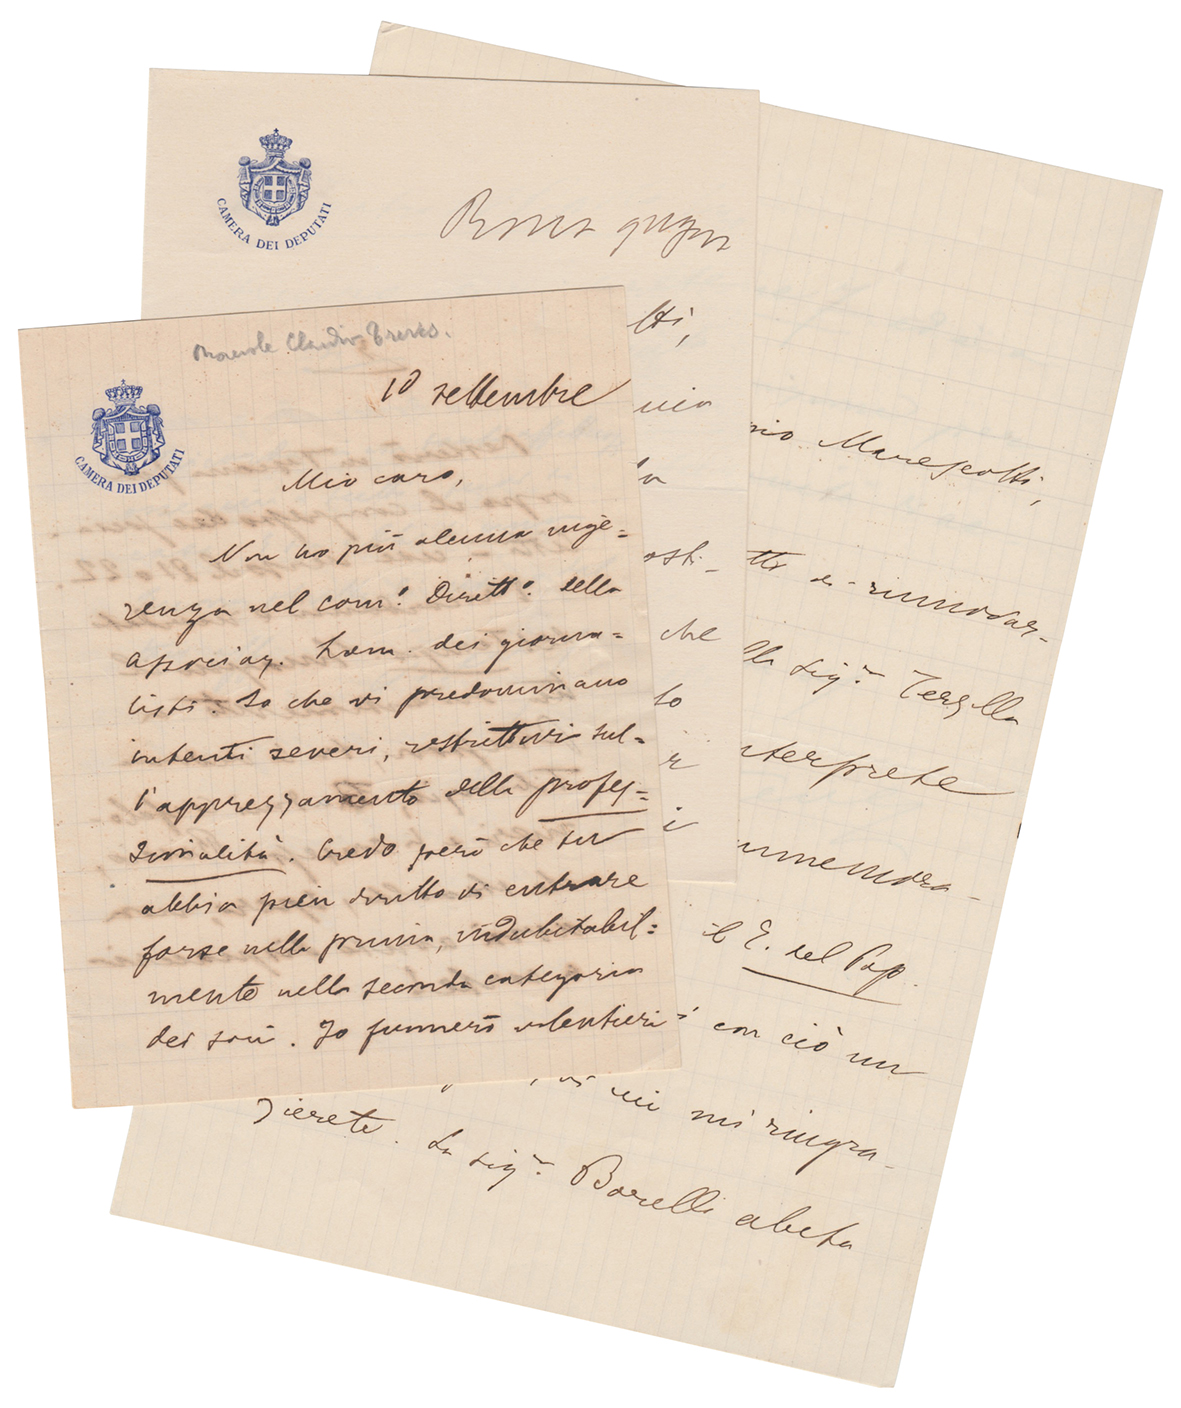 Onorevole Claudio Treves.
CAMERA DEI DEPUTATI
10 settembre
Mio caro,
Non ho più alcuna inge=
renza nel comº. Direttº. della
associaz. Lom. dei giorna=
listi. So che vi predominano
intenti severi, restrittivi sul=
l'apprezzamento della profes=
sionalità. Credo però che tu
abbia pien diritto di entrare
forse nella prima, indubitabil=
mente nella seconda categoria
dei soci. Io firmerò volentieri
CAMERA DEI DEPUTATI
Roma giugno
tti,
via
la
osti-
che
to
r
i
mio Marescotti,
tto di rimodar-
lla sigª. Terzella
nterprete
mmemora-
il E. del Pop.
con ciò un
mi ringra-
zierete. La sigª. Borelli abita